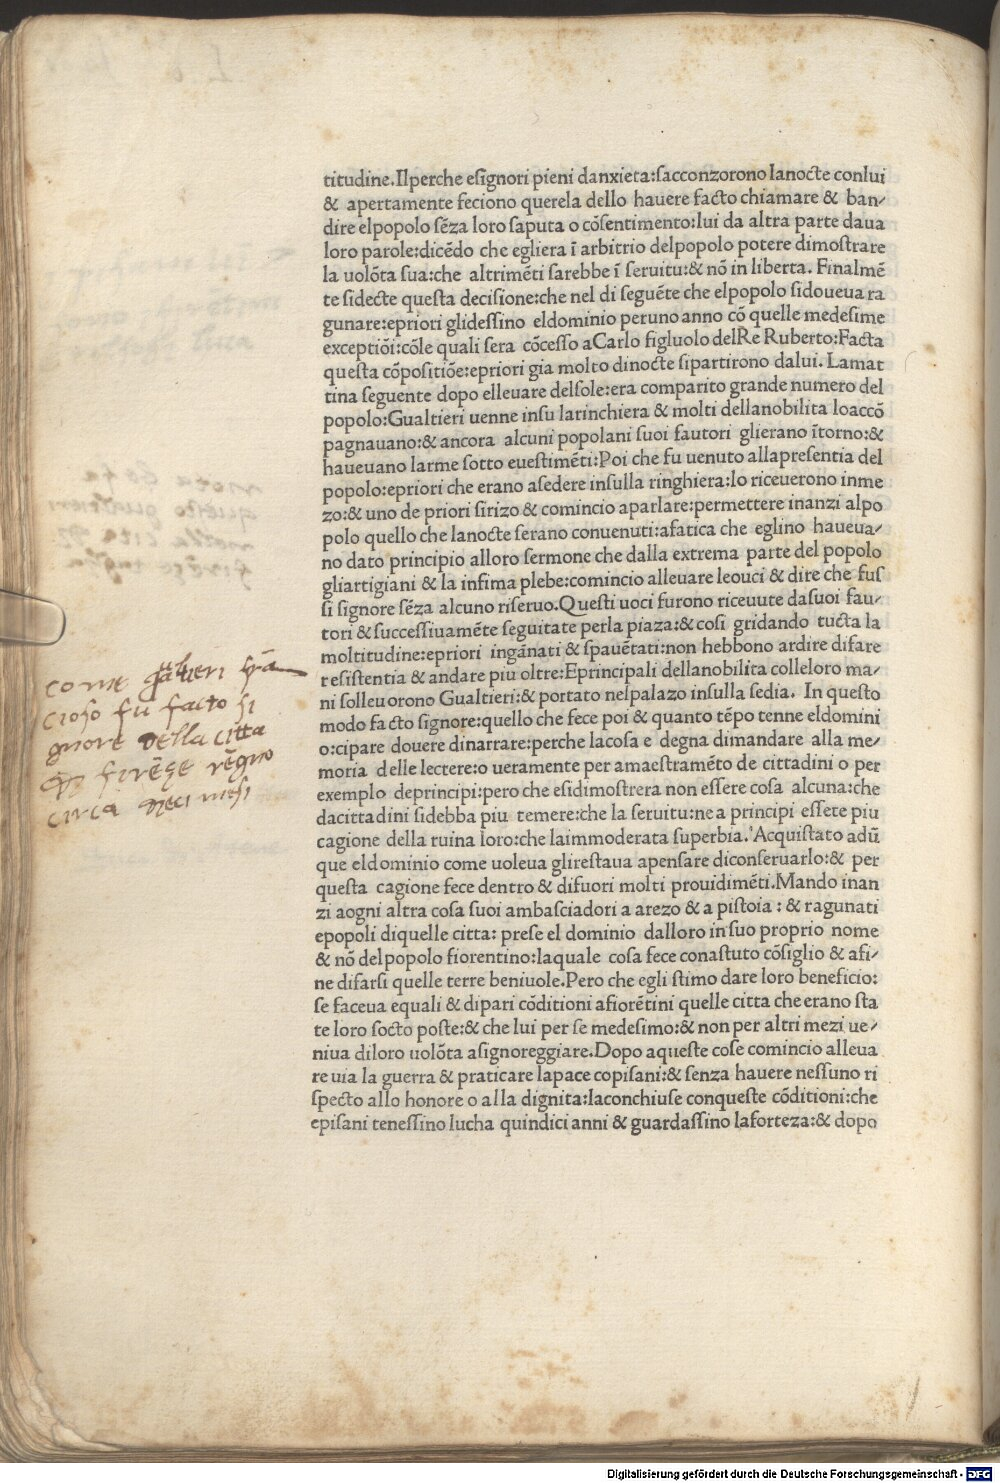 titudine.Ilperche esignori pieni danxieta:sacconzorono lanocte conlui
& apertamente feciono querela dello hauere facto chiamare & ban/
dire elpopolo sēza loro saputa o cōsentimento:lui da altra parte daua
loro parole:dicēdo che egliera ī arbitrio delpopolo potere dimostrare
la uolōta sua:che altrimēti sarebbe ī seruitu:& nō in liberta. Finalmē
te sidecte questa decisione:che nel di seguēte che elpopolo sidoueua ra
gunare:epriori glidessino eldominio peruno anno cō quelle medesime
exceptiōi:cōle quali sera cōcesso aCarlo figluolo delRe Ruberto:Facta
questa cōpositiōe:epriori gia molto dinocte sipartirono dalui. Lamat
tina seguente dopo elleuare delsole:era comparito grande numero del
popolo:Gualtieri uenne insu larinchiera & molti dellanobilita loaccō
pagnauano:& ancora alcuni popolani suoi fautori glierano ītorno:&
haueuano larme sotto euestimēti:Poi che fu uenuto allapresentia del
popolo:epriori che erano asedere insulla ringhiera:lo riceuerono inme
zo:& uno de priori sirizo & comincio aparlare:permettere inanzi alpo
polo quello che lanocte serano conuenuti:afatica che eglino haueua/
no dato principio alloro sermone che dalla extrema parte del popolo
gliartigiani & la infima plebe:comincio alleuare leouci & dire che fus
si signore sēza alcuno riseruo.Questi uoci furono riceuute dasuoi fau/
tori & successiuamēte seguitate perla piaza:& cosi gridando tucta la
moltitudine:epriori ingānati & spauētati:non hebbono ardire difare
resistentia & andare piu oltre:Eprincipali dellanobilita colleloro ma/
ni solleuorono Gualtieri:& portato nelpalazo insulla sedia. In questo
modo facto signore:quello che fece poi & quanto tēpo tenne eldomini
o:cipare douere dinarrare:perche lacosa e degna dimandare alla me/
moria delle lectere:o ueramente per amaestramēto de cittadini o per
exemplo deprincipi:pero che esidimostrera non essere cosa alcuna:che
dacittadini sidebba piu temere:che la seruitu:ne a principi essere piu
cagione della ruina loro:che laimmoderata superbia. Acquistato adū
que eldominio come uoleua glirestaua apensare diconseruarlo:& per
questa cagione fece dentro & difuori molti prouidimēti.Mando inan
zi aogni altra cosa suoi ambasciadori a arezo & a pistoia : & ragunati
epopoli diquelle citta: prese el dominio dalloro in suo proprio nome
& nō del popolo fiorentino:laquale cosa fece conastuto cōsiglio & afi/
ne difarsi quelle terre beniuole.Pero che egli stimo dare loro beneficio:
se faceua equali & dipari cōditioni afiorētini quelle citta che erano sta
te loro socto poste:& che lui per se medesimo:& non per altri mezi ue/
niua diloro uolōta asignoreggiare.Dopo aqueste cose comincio alleua
re uia la guerra & praticare lapace copisani:& senza hauere nessuno ri
specto allo honore o alla dignita:laconchiuse conqueste cōditioni:che
episani tenessino lucha quindici anni & guardassino laforteza:& dopo
come gualtieri frā
cioso fu facto si
gnore della citta
di firēze regno
circa dieci mesi
Digitalisierung gefördert durch die Deutsche Forschungsgemeinschaft - DFG